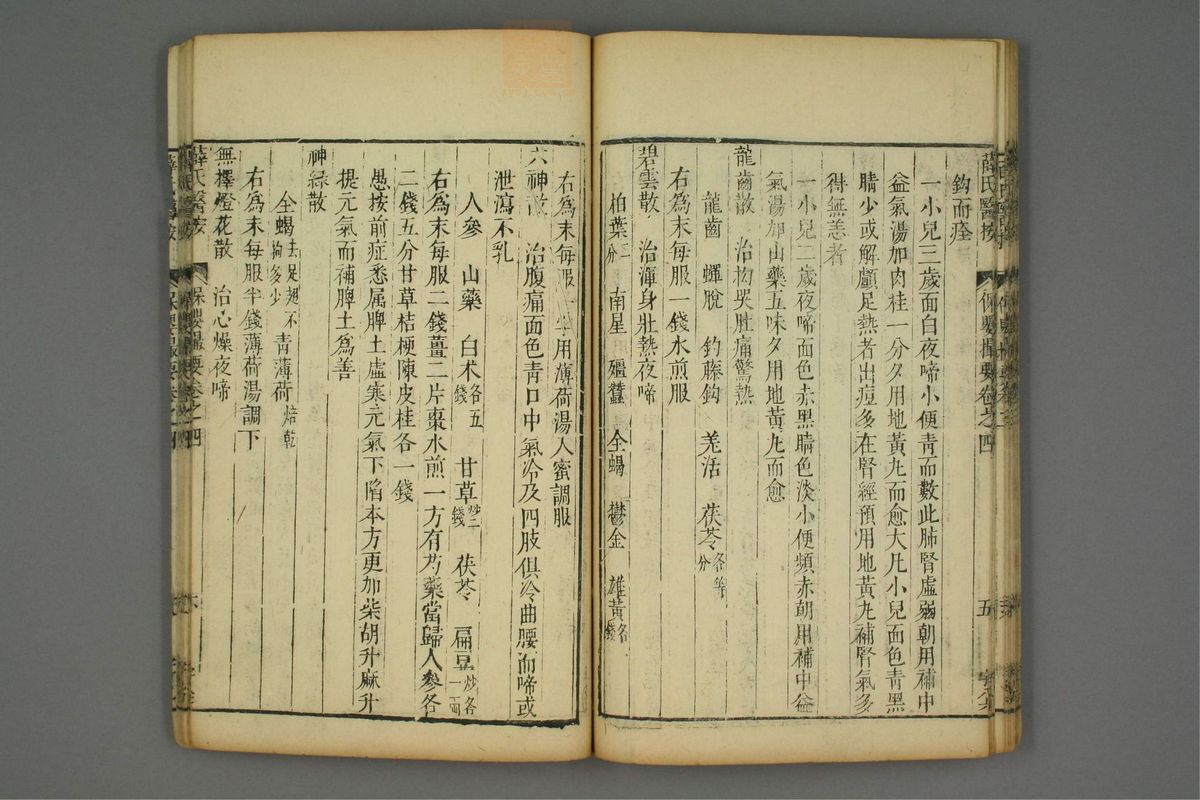 薛氏醫按
保嬰撮要卷之四
五
鈎而痊
一小兒三歲面白夜啼小便青而數此肺腎虛弱朝用補中
益氣湯加肉桂一分夕用地黃丸而愈大凡小兒面色青黑
睛少或解顱足熱者出痘多在腎經預用地黃丸補腎氣多
得無恙者
一小兒二歲夜啼面色赤黑睛色淡小便頻赤朝用補中益
氣湯加山藥五味夕用地黃丸而愈
龍齒散 治拗哭肚痛驚熱
龍齒 蟬脫 鈎藤鈎 羌活 茯苓各等分
右為末每服一錢水煎服
碧雲散 治渾身壯熱夜啼
柏葉三分 南星 殭蠶 全蝎 鬱金 雄黃各一錢
右為末每服一字用薄荷湯入蜜調服
六神散 治腹痛面色青口中氣冷及四肢俱冷曲腰而啼或
泄瀉不乳
人參 山藥 白朮各五錢 甘草炒二錢 茯苓 扁豆炒各一兩
右為末每服二錢薑二片棗水煎一方有芍藥當歸人參各
二錢五分甘草桔梗陳皮桂各一錢
愚按前症悉属脾土虛寒元氣下陷本方更加柴胡升麻升
提元氣而補脾土為善
神綠散
全蝎去足翅不拘多少 青薄荷焙乾
右為末每服半錢薄荷湯調下
無擇燈花散 治心燥夜啼
薛氏醫按
保嬰撮要卷之四
六